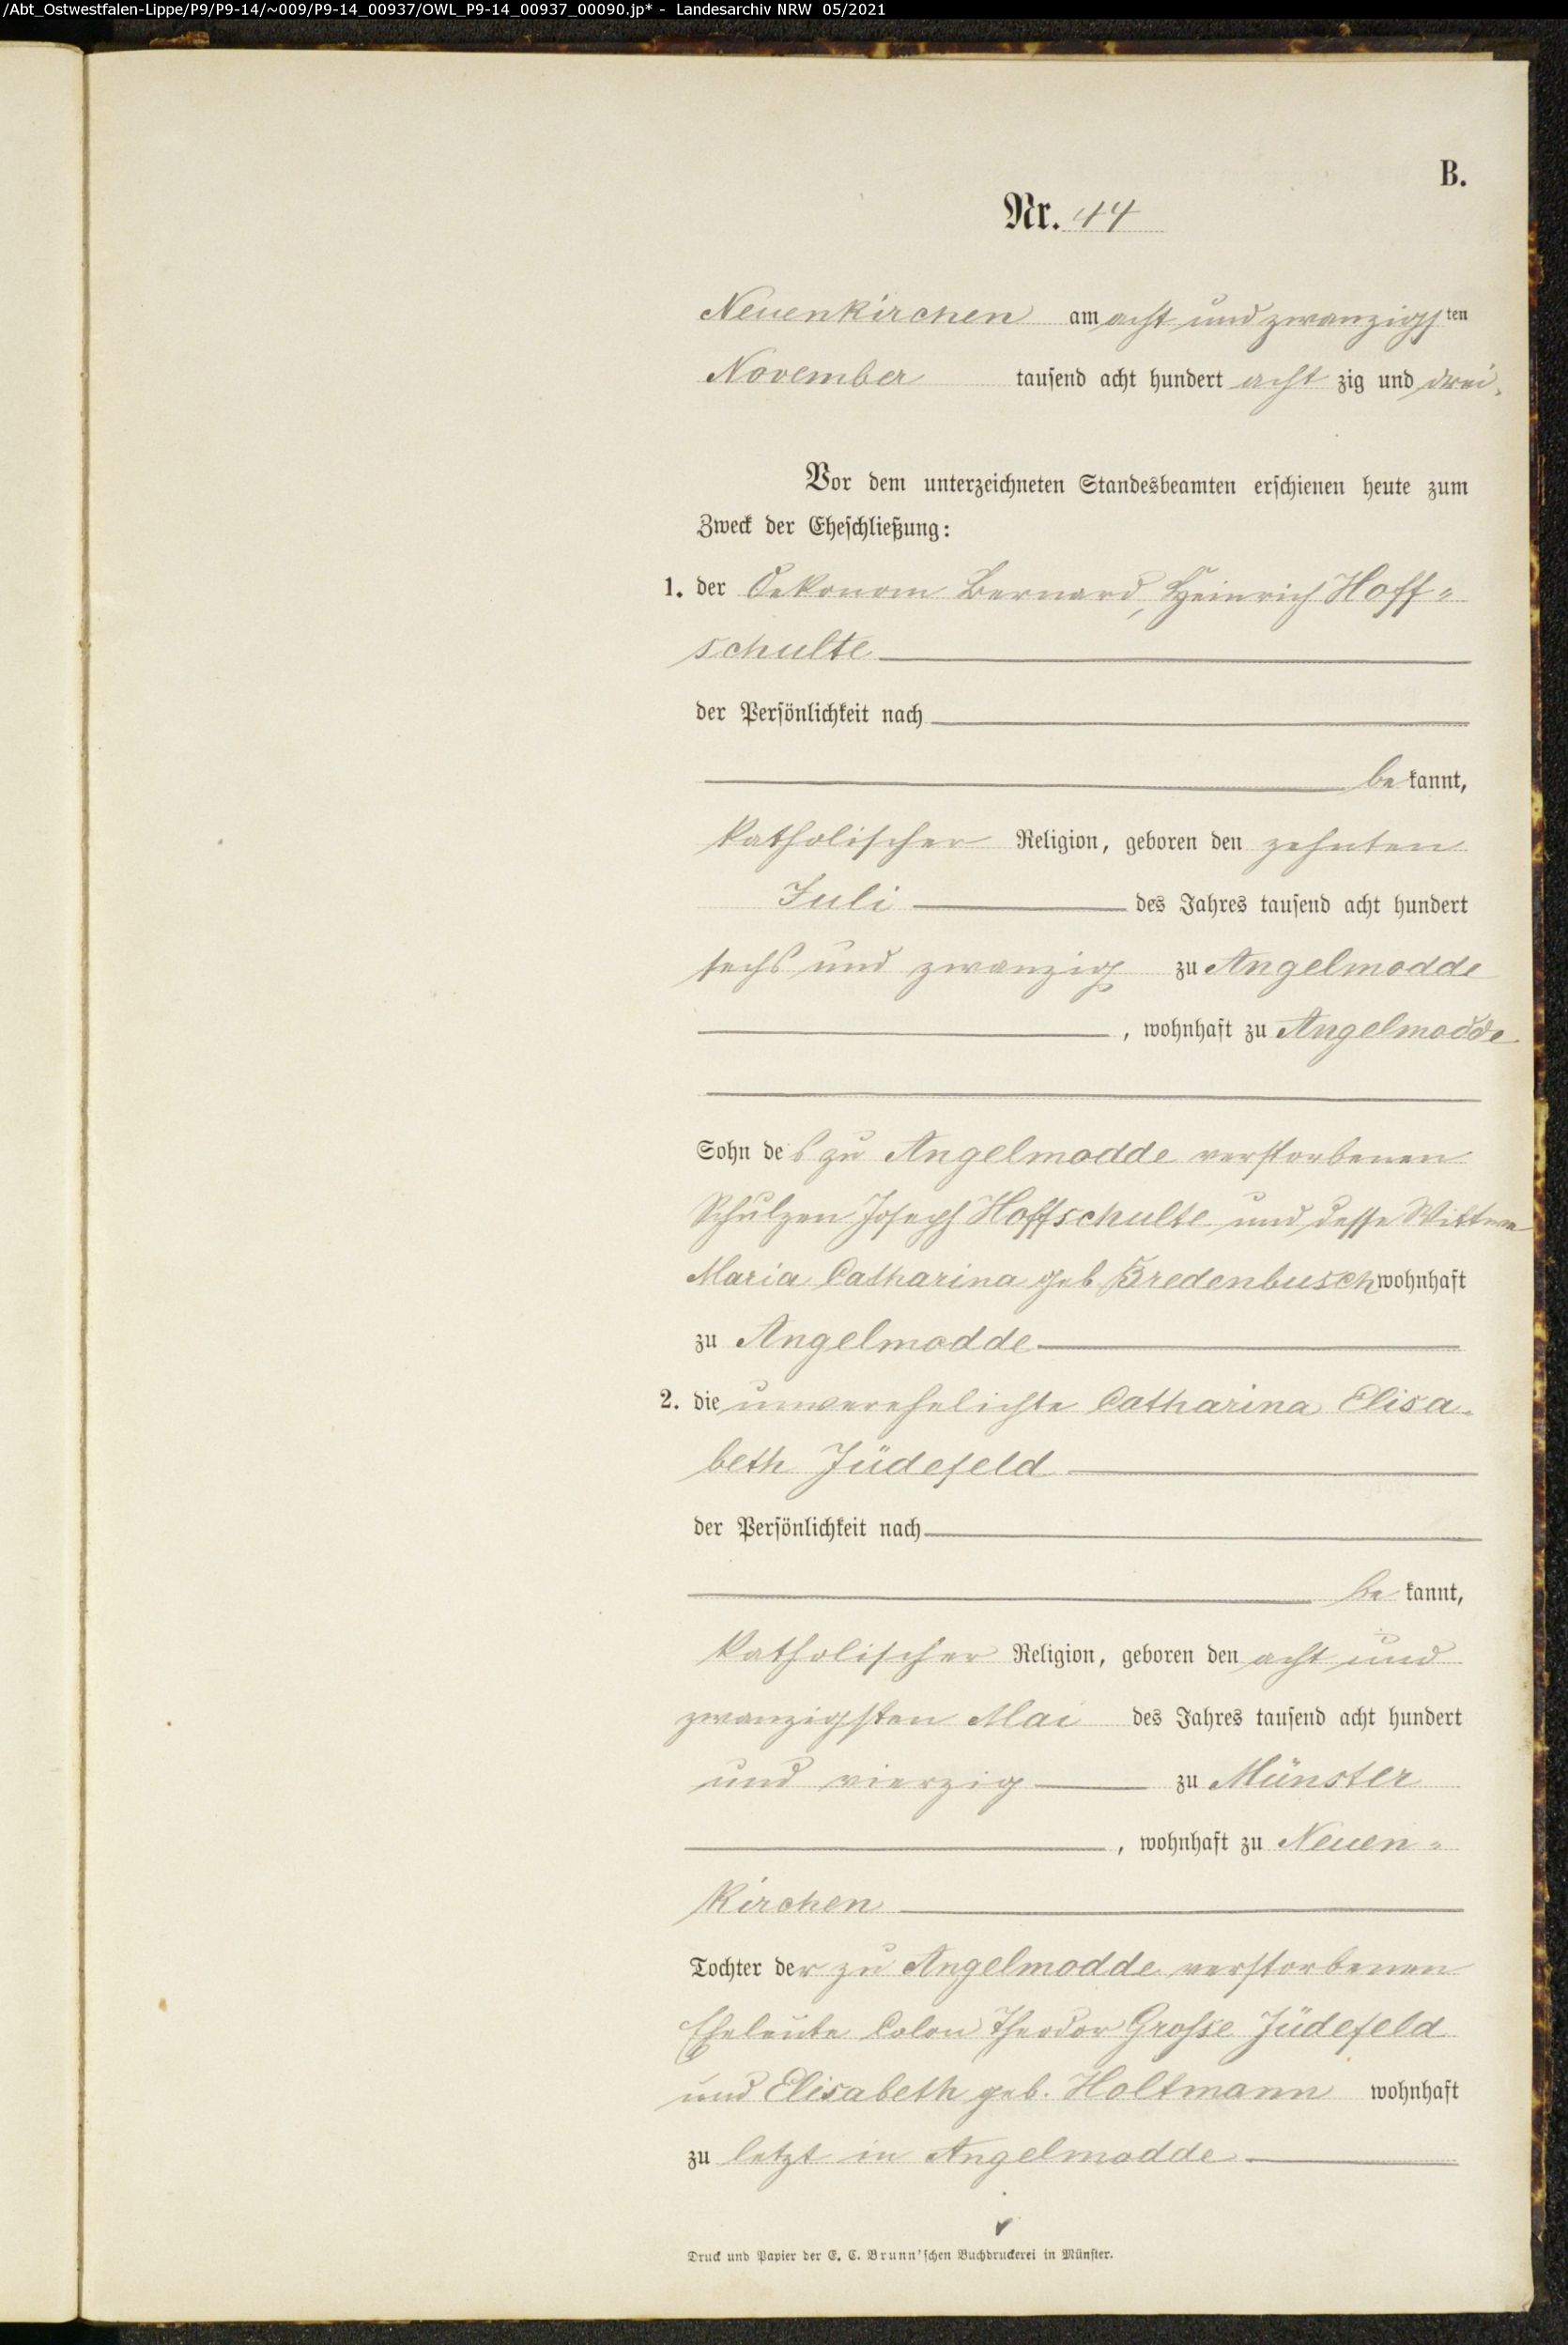 /Abt_Ostwestfalen-Lippe/P9/P9-14/~009/P9-14_00937/OWL_P9-14_00937_00090.jp* - Landesarchiv NRW 05/2021
B.
Nr. 44
Neuenkirchen am acht und zwanzigsten
November tausend acht hundert acht zig und drei.
Vor dem unterzeichneten Standesbeamten erschienen heute zum
Zweck der Eheschließung:
1. der Oekonom Bernard, Heinrich Hoff=
schulte
der Persönlichkeit nach
be kannt,
katholischer Religion, geboren den zehnten
Juli des Jahres tausend acht hundert
sechs und zwanzig zu Angelmodde
, wohnhaft zu Angelmodde
Sohn des zu Angelmodde verstorbenen
Schulzen Joseph Hoffschulte und desse Wittwe
Maria Catharina geb Bredenbusch wohnhaft
zu Angelmodde
2. die unverehelichte Catharina Elisa-
beth Jüdefeld
der Persönlichkeit nach
be kannt,
katholischer Religion, geboren den acht und
zwanzigsten Mai des Jahres tausend acht hundert
und vierzig zu Münster
, wohnhaft zu Neuen=
kirchen
Tochter der zu Angelmodde verstorbenen
Eheleute Colon Theodor Grosse Jüdefeld
und Elisabeth geb. Holtmann wohnhaft
zu letzt in Angelmodde
Druck und Papier der E. C. Brunn'schen Buchdruckerei in Münster.